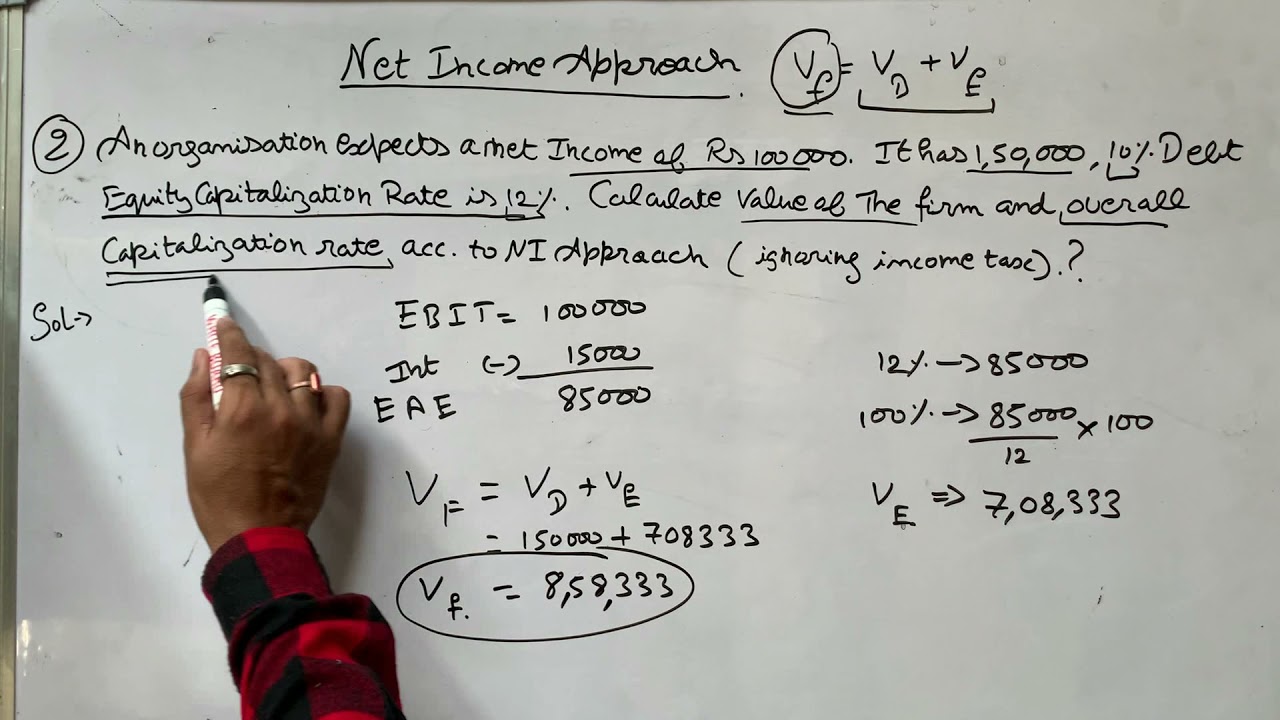 Net Income Approach. Vf = VD + VE
② An organisation expects a net Income of Rs 100000. It has 1,50,000, 10% Debt
Equity Capitalization Rate is 12%. Calculate Value of The firm and overall
Capitalization rate, acc. to NI Approach (ignoring income tax).?
Sol→
EBIT = 100000
Int (-) 15000
EAE 85000
12% → 85000
100% → 85000/12 × 100
VE ⇒ 7,08,333
VF = VD + VE
= 150000 + 708333
Vf. = 8,58,333